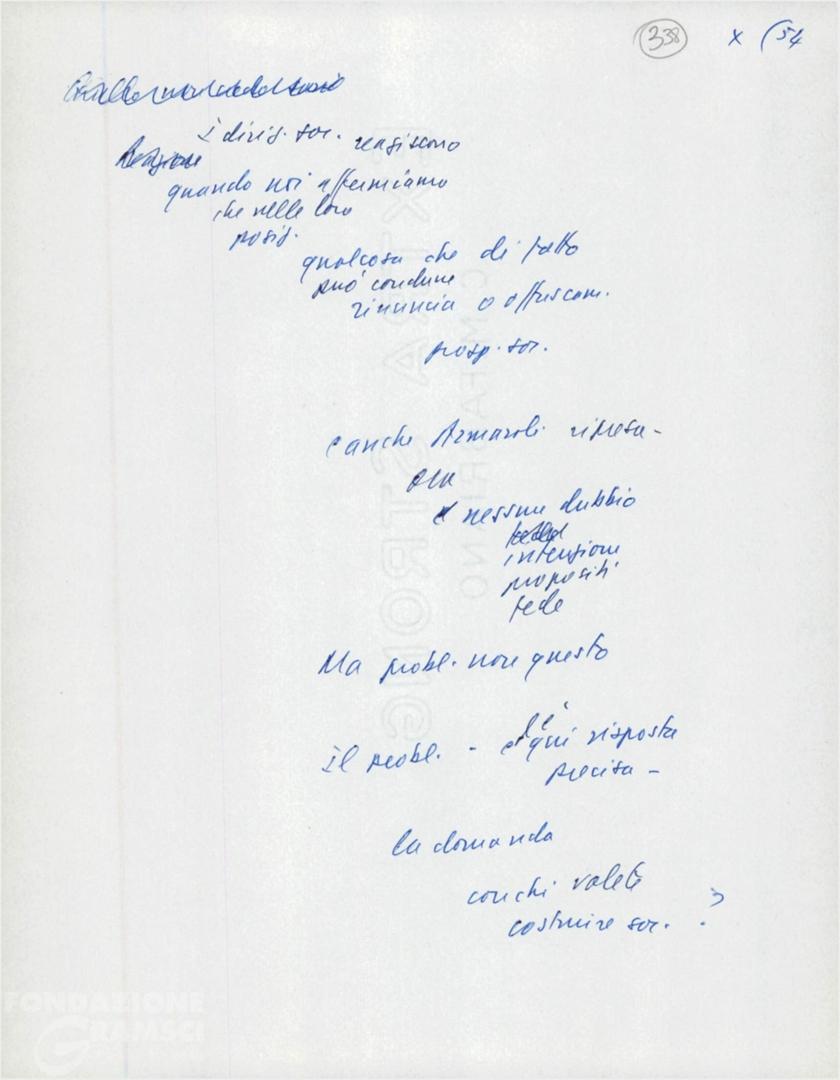 338 x (54
i dirig. soc. reagiscono
Reazione
quando noi affermiamo
che nelle loro
posiz.
qualcosa che di fatto
può condurre
rinuncia o offuscam.
prosp. soc.
e anche Armaroli ripresa -
ora
nessun dubbio
intenzione
propositi
fede
Ma probl. non questo
Il probl. - è qui risposta
precisa -
la domanda
con chi volete
costruire soc. ?
FONDAZIONE
GRAMSCI